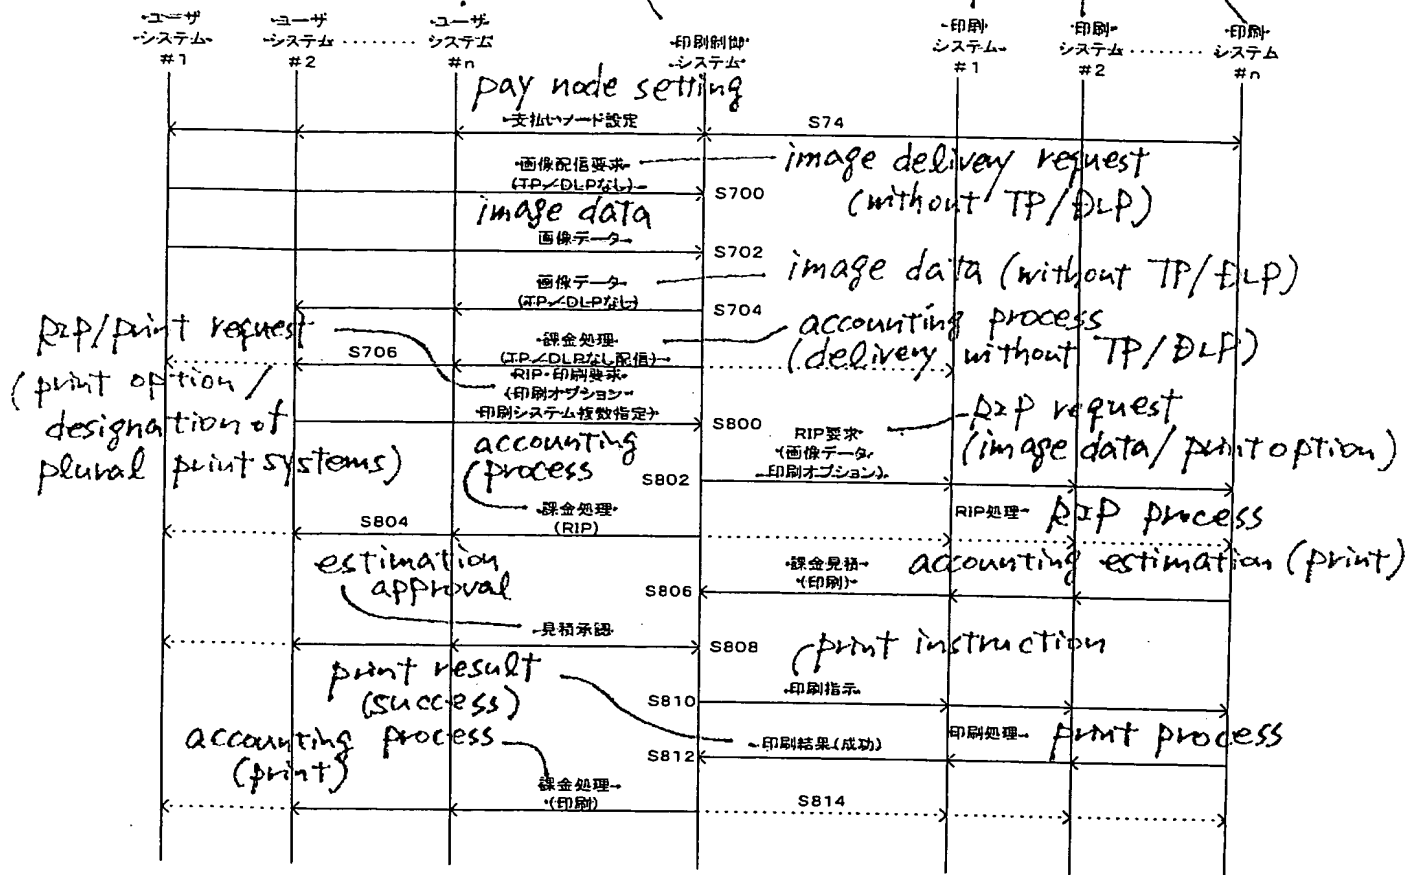 ユーザ
システム
#1
ユーザ
システム
#2
ユーザ
システム
#n
印刷制御
システム
印刷
システム
#1
印刷
システム
#2
印刷
システム
#n
pay node setting
支払いノード設定
S74
画像配信要求
(TP/DLPなし)
S700
image delivery request
(without TP/DLP)
image data
画像データ
S702
画像データ
(TP/DLPなし)
S704
image data (without TP/DLP)
RIP/print request
(print option/
designation of
plural print systems)
S706
課金処理
(TP/DLPなし配信)
accounting process
(delivery without TP/DLP)
RIP・印刷要求
(印刷オプション
印刷システム複数指定)
S800
RIP要求
(画像データ
印刷オプション)
S802
RIP request
(image data/print option)
accounting
process
S804
課金処理
(RIP)
RIP処理
RIP process
estimation
approval
課金見積
(印刷)
S806
accounting estimation (print)
見積承認
S808
print instruction
print result
(success)
S810
印刷指示
accounting process
(print)
印刷結果(成功)
S812
印刷処理
print process
課金処理
(印刷)
S814